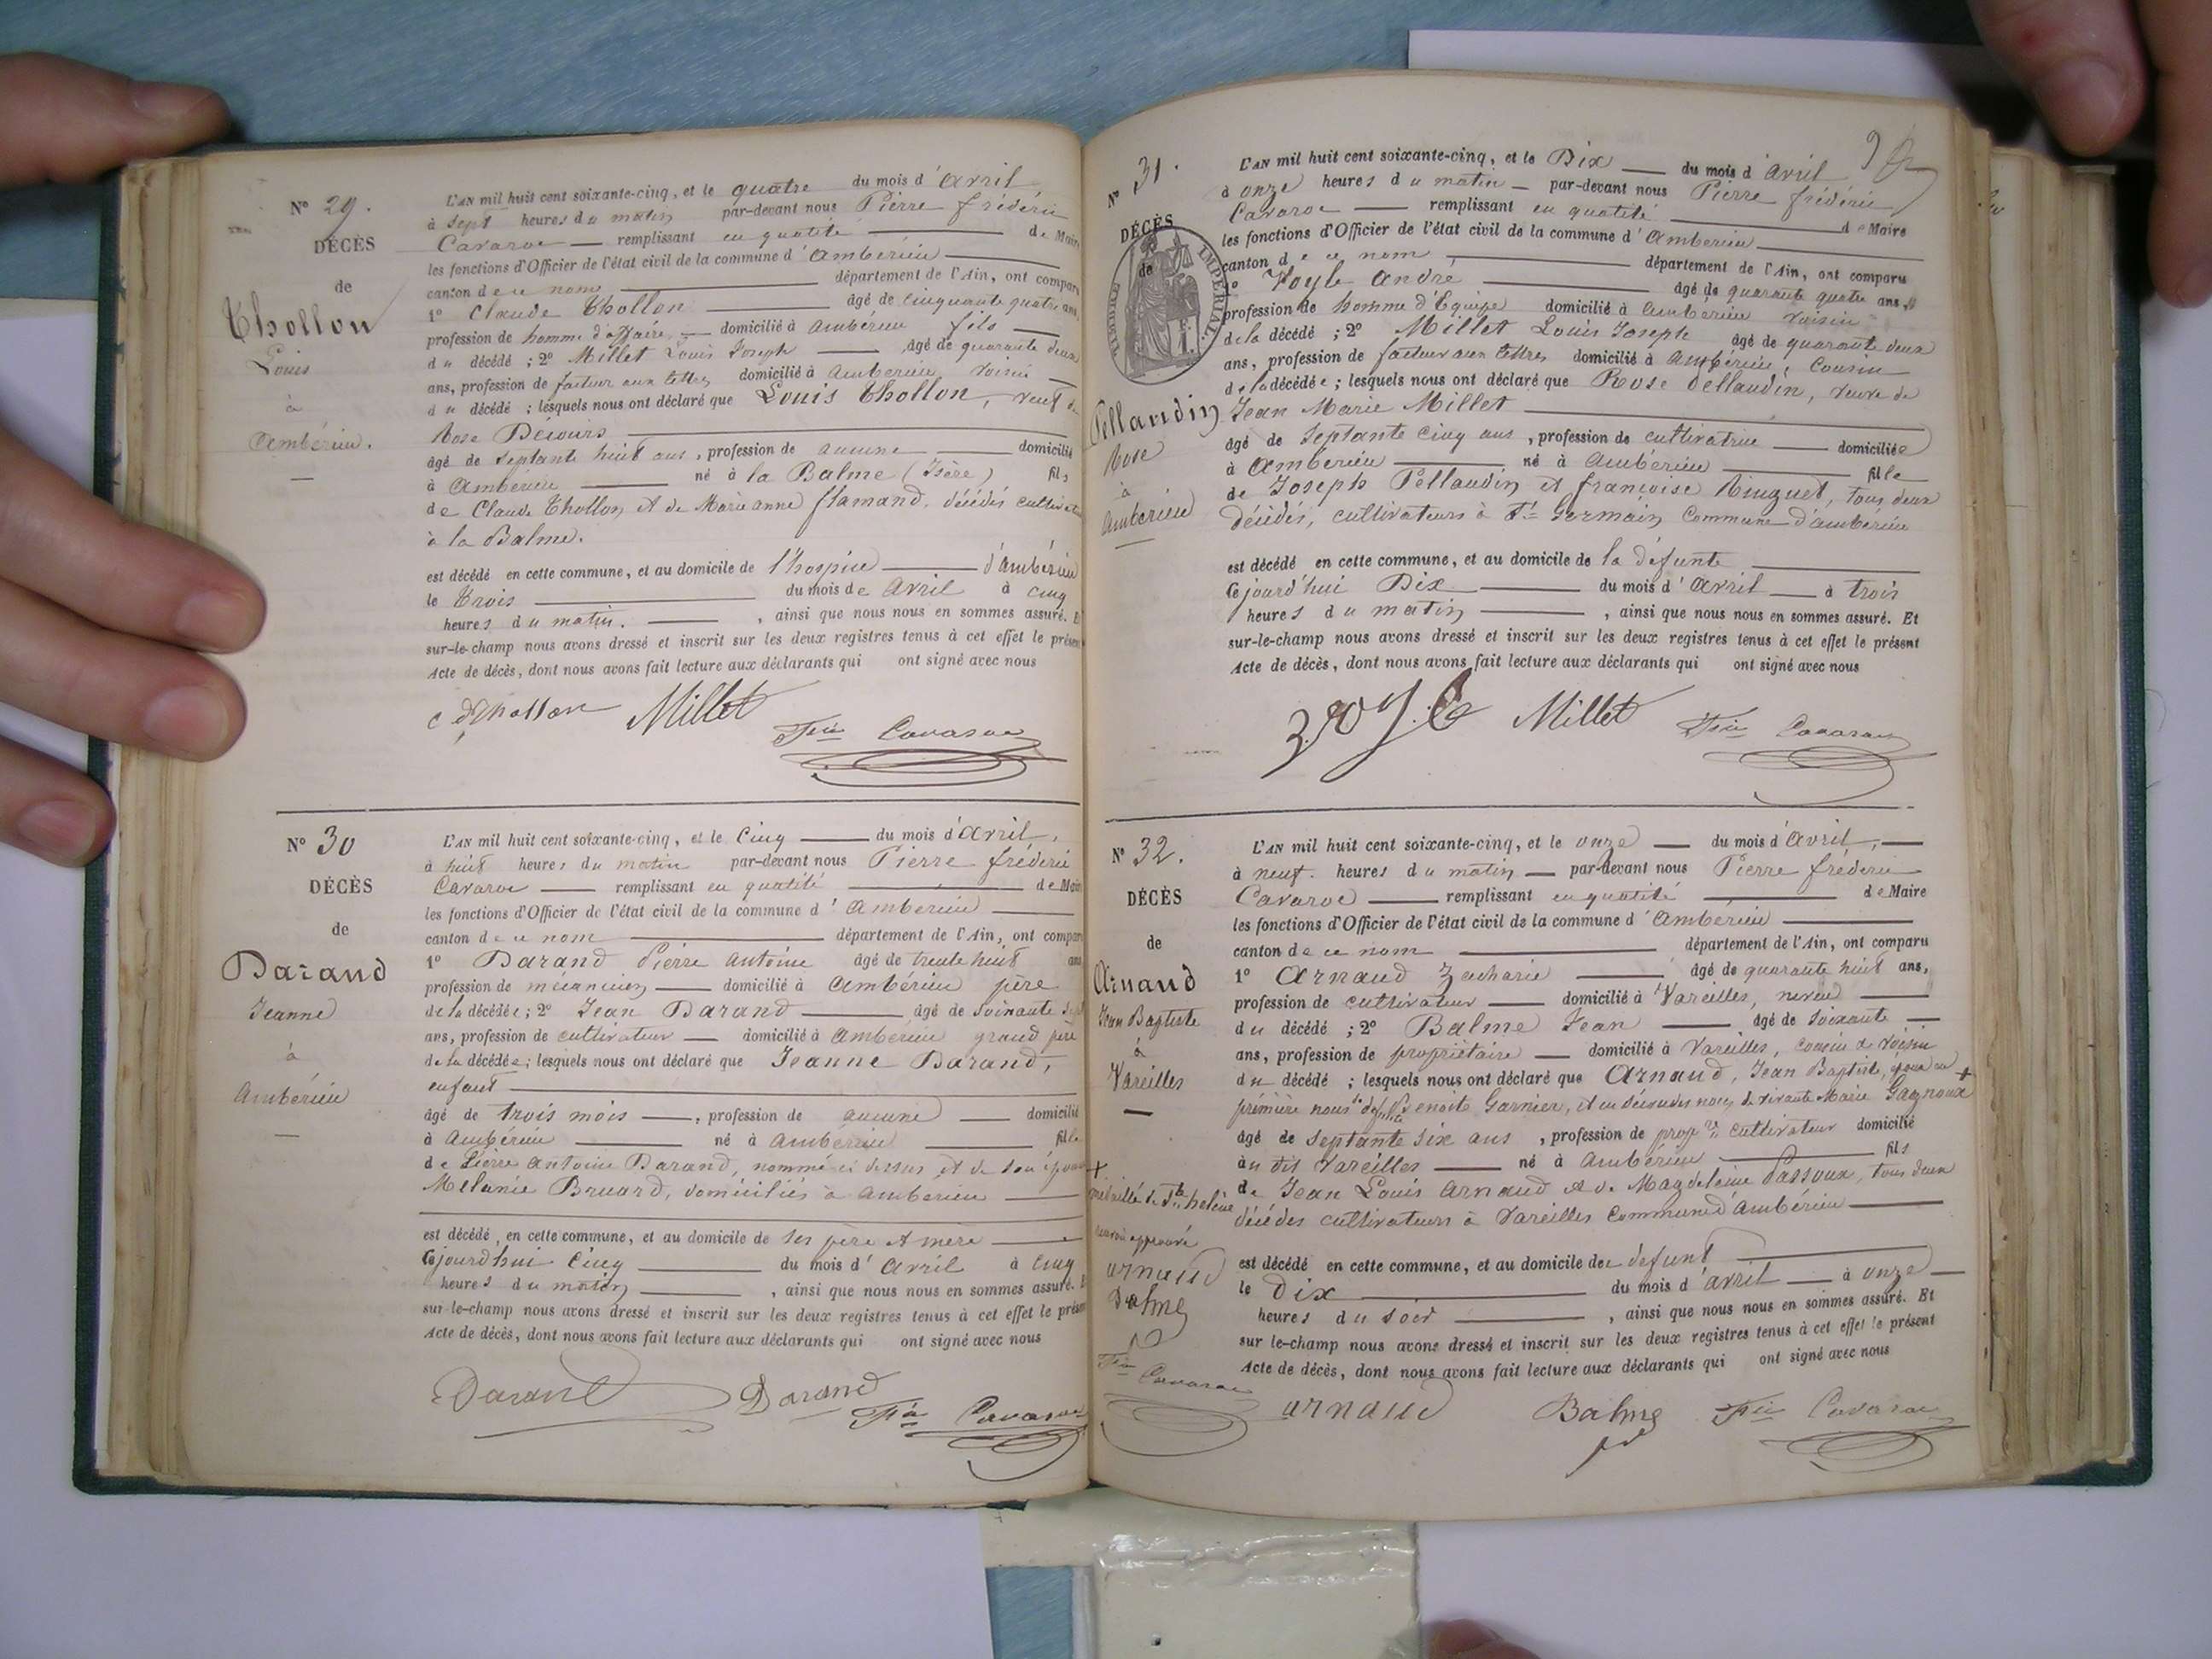 N° 29.
DÉCÈS
de
Thollon
Louis
à
Ambérieu.
L'AN mil huit cent soixante-cinq, et le quatre du mois d'Avril
à sept heures du matin par-devant nous Pierre frédéric
Cavaroc — remplissant en qualité de Maire
les fonctions d'Officier de l'état civil de la commune d'Ambérieu
canton de ce nom département de l'Ain, ont comparu
1° Claude Thollon âgé de cinquante quatre ans,
profession de homme d'affaire, domicilié à Ambérieu fils
du décédé ; 2° Millet Louis Joseph âgé de quarante deux
ans, profession de facteur aux lettres domicilié à Ambérieu, voisin
du décédé ; lesquels nous ont déclaré que Louis Thollon, veuf de
Rose Decours
âgé de septante huit ans, profession de aucune domicilié
à Ambérieu né à la Balme (Isère) fils
de Claude Thollon et de Marie anne flamand, décédés cultivateurs
à la Balme.
est décédé en cette commune, et au domicile de l'hospice d'ambérieu
le Trois du mois de Avril à cinq
heures du matin. , ainsi que nous nous en sommes assuré. Et
sur-le-champ nous avons dressé et inscrit sur les deux registres tenus à cet effet le présent
Acte de décès, dont nous avons fait lecture aux déclarants qui ont signé avec nous
Thollon Millet
Fric Cavaroc
N° 30
DÉCÈS
de
Darand
Jeanne
à
Ambérieu
L'AN mil huit cent soixante-cinq, et le Cinq du mois d'Avril,
à huit heures du matin par-devant nous Pierre frédéric
Cavaroc remplissant en qualité de Maire
les fonctions d'Officier de l'état civil de la commune d'Ambérieu
canton de ce nom département de l'Ain, ont comparu
1° Darand Pierre Antoine âgé de trente huit ans
profession de mécanicien domicilié à Ambérieu père
de la décédée ; 2° Jean Darand âgé de soixante sept
ans, profession de cultivateur domicilié à Ambérieu grand père
de la décédée ; lesquels nous ont déclaré que Jeanne Darand,
enfant
âgé de trois mois, profession de aucune domicilié
à Ambérieu né à Ambérieu fille
de Pierre Antoine Darand, nommé ci dessus et de son épouse
Mélanie Bruard, domiciliés à Ambérieu
est décédé en cette commune, et au domicile de ses père et mère
Cejourd'hui Cinq du mois d'Avril à cinq
heures du matin , ainsi que nous nous en sommes assuré. Et
sur-le-champ nous avons dressé et inscrit sur les deux registres tenus à cet effet le présent
Acte de décès, dont nous avons fait lecture aux déclarants qui ont signé avec nous
Darand Darand
Fric Cavaroc
N° 31.
DÉCÈS
de
TIMBRE IMPÉRIAL
Pellaudin
Rose
à
Ambérieu
L'AN mil huit cent soixante-cinq, et le Dix du mois d'Avril
à onze heures du matin par-devant nous Pierre frédéric
Cavaroc remplissant en qualité de Maire
les fonctions d'Officier de l'état civil de la commune d'Ambérieu
canton de ce nom, département de l'Ain, ont comparu
1° Voyle André âgé de quarante quatre ans,
profession de homme d'Equipe domicilié à Ambérieu voisin
de la décédé ; 2° Millet Louis Joseph âgé de quarante deux
ans, profession de facteur aux lettres domicilié à Ambérieu, Cousin
de la décédée ; lesquels nous ont déclaré que Rose Pellaudin, veuve de
Jean Marie Millet
âgé de septante cinq ans, profession de cultivatrice domiciliée
à Ambérieu né à Ambérieu fille
de Joseph Pellaudin et françoise Ringuet, tous deux
décédés, cultivateurs à St Germain Commune d'ambérieu
est décédé en cette commune, et au domicile de la défunte
Cejourd'hui Dix du mois d'Avril à trois
heures du matin , ainsi que nous nous en sommes assuré. Et
sur-le-champ nous avons dressé et inscrit sur les deux registres tenus à cet effet le présent
Acte de décès, dont nous avons fait lecture aux déclarants qui ont signé avec nous
Millet Fric Cavaroc
N° 32.
DÉCÈS
de
Arnaud
Jean Baptiste
à
Vareilles
L'AN mil huit cent soixante-cinq, et le onze du mois d'Avril,
à neuf heures du matin par-devant nous Pierre frédéric
Cavaroc remplissant en qualité de Maire
les fonctions d'Officier de l'état civil de la commune d'Ambérieu
canton de ce nom département de l'Ain, ont comparu
1° Arnaud Zacharie âgé de quarante huit ans,
profession de cultivateur domicilié à Vareilles, neveu
du décédé ; 2° Balme Jean âgé de soixante
ans, profession de propriétaire domicilié à Vareilles, cousin et voisin
du décédé ; lesquels nous ont déclaré que Arnaud, Jean Baptiste, époux en +
première noces de Benoite Garnier, et en secondes noces de vivante Marie Gagnoux
âgé de septante six ans, profession de propre cultivateur domicilié
au dit Vareilles né à Ambérieu fils
de Jean Louis Arnaud et de Magdeleine Passoux, tous deux
décédés cultivateurs à Vareilles Commune d'Ambérieu
est décédé en cette commune, et au domicile du défunt
le dix du mois d'avril à onze
heures du soir , ainsi que nous nous en sommes assuré. Et
sur le-champ nous avons dressé et inscrit sur les deux registres tenus à cet effet le présent
Acte de décès, dont nous avons fait lecture aux déclarants qui ont signé avec nous
+
médaillé de Ste hélène
renvoi approuvé
arnaud
Balme
Fric Cavaroc
arnaud Balme Fric Cavaroc